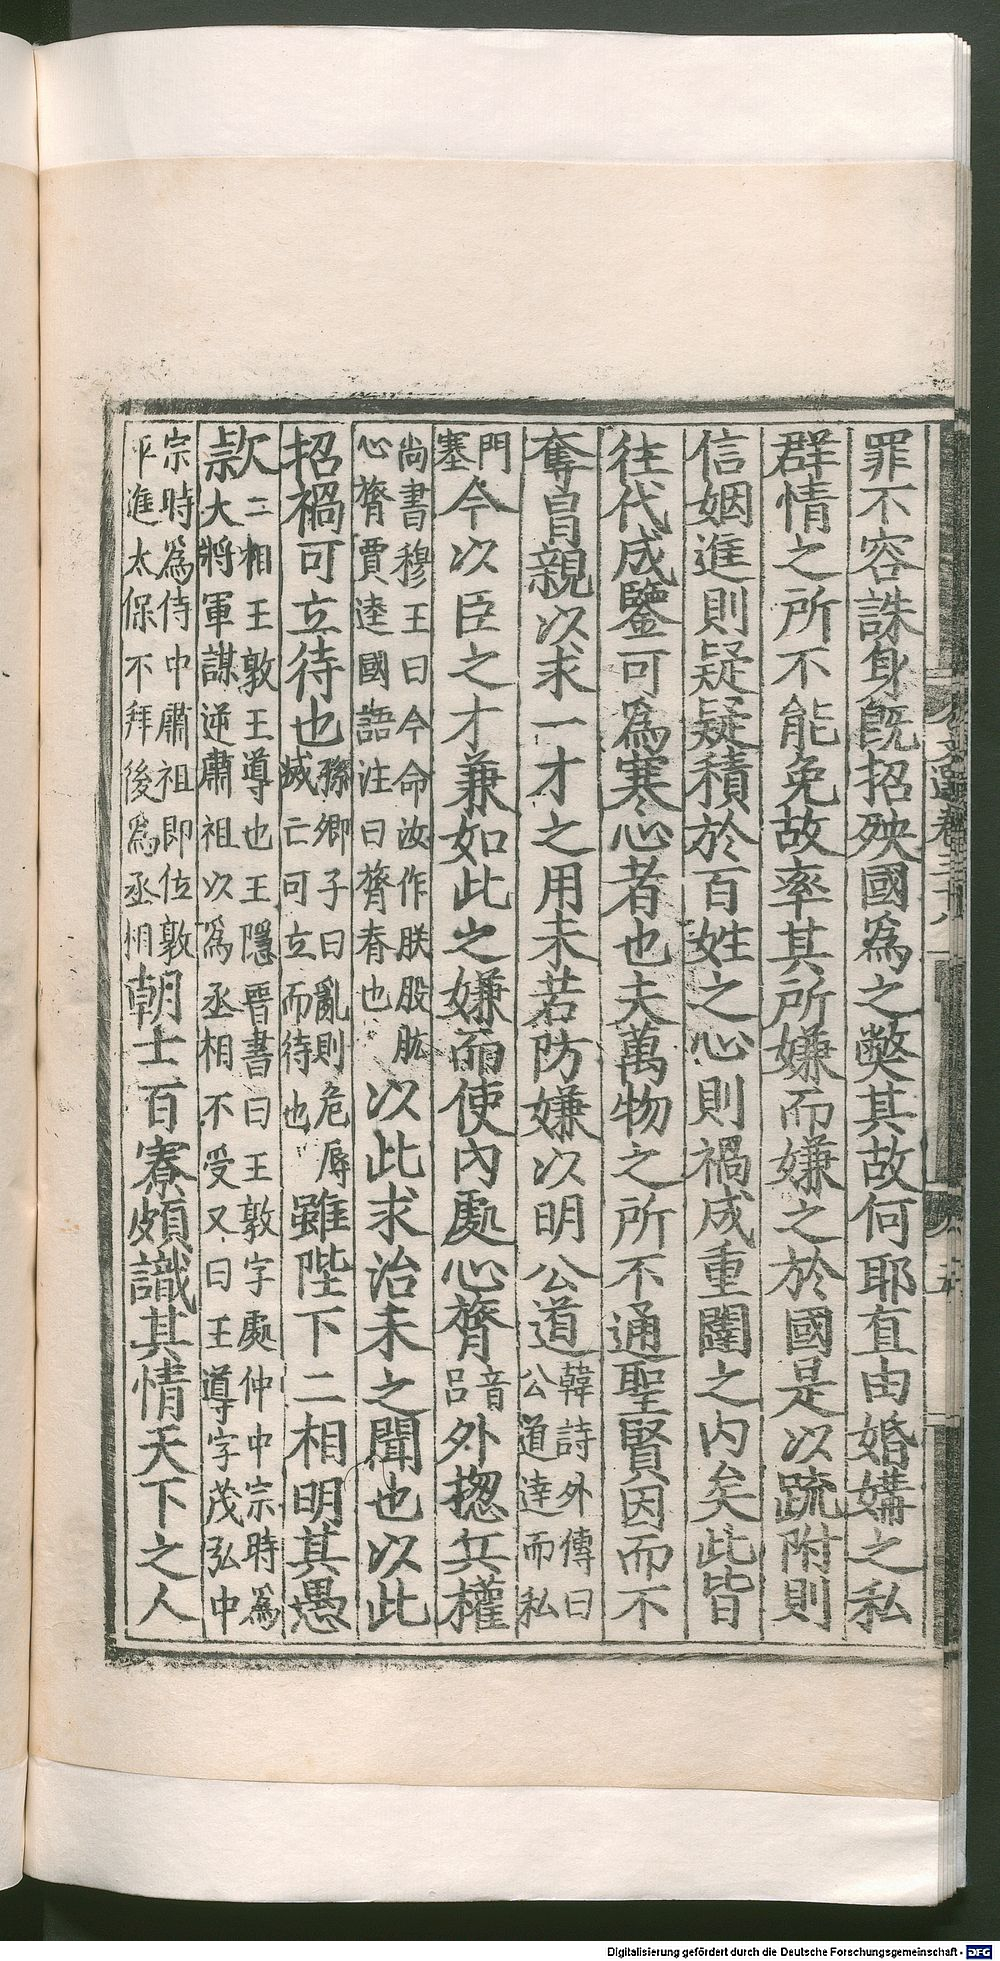 罪不容誅身旣招殃國爲之獘其故何耶直由婚媾之私
群情之所不能免故率其所嫌而嫌之於國是以疏附則
信姻進則疑疑積於百姓之心則禍成重闥之内矣此皆
往代成鑒可爲寒心者也夫萬物之所不通聖賢因而不
奪冐親以求一才之用未若防嫌以明公道韓詩外傳曰
公道達而私
門
塞今以臣之才兼如此之嫌而使內處心膂音
吕外揔兵權
尚書穆王曰今命汝作朕股肱
心膂賈逵國語注曰膂脊也以此求治未之聞也以此
招禍可立待也孫卿子曰亂則危辱
滅亡可立而待也雖陛下二相明其愚
欵二相王敦王導也王隱晉書曰王敦字處仲中宗時爲
大將軍謀逆肅祖以爲丞相不受又曰王導字茂弘中
宗時爲侍中肅祖即位敦
平進太保不拜後爲丞相朝士百寮頗識其情天下之人
Digitalisierung gefördert durch die Deutsche Forschungsgemeinschaft - DFG